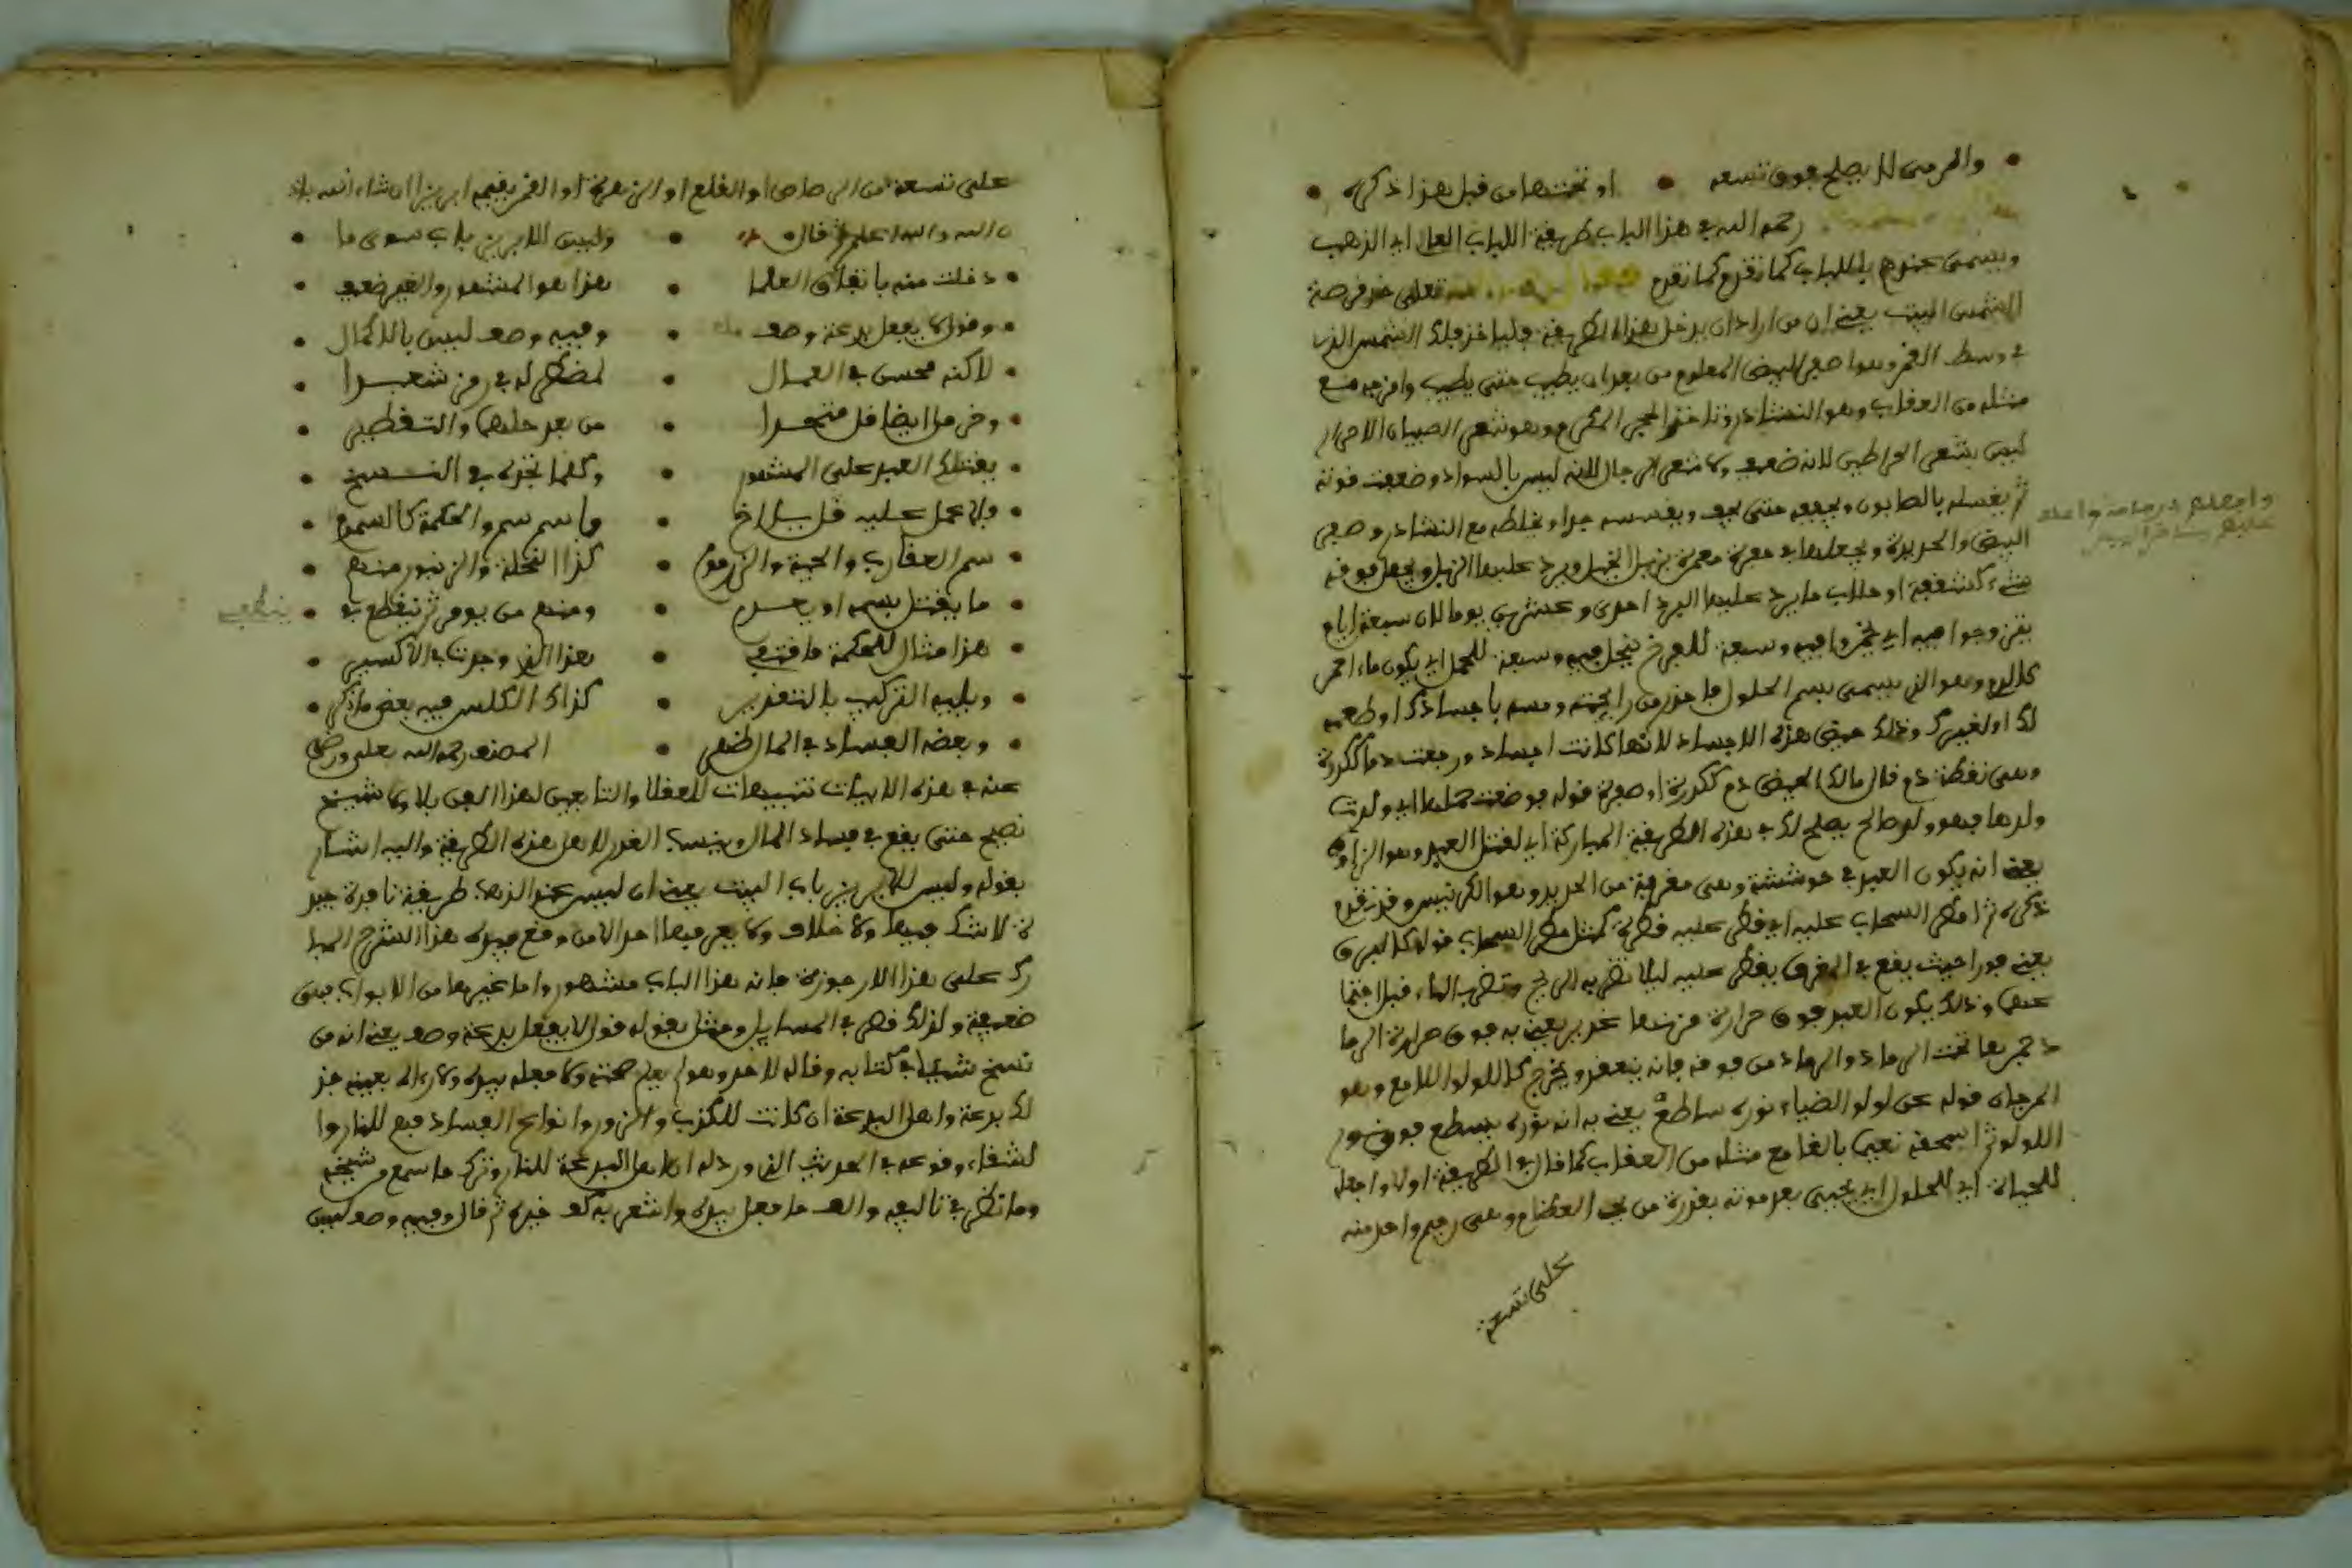 والرمى لا يصلح فوق تسعه • او تحتها من قبل هذا ذكره
رحمه الله في هذا الباب طريقة اللباب العلـ اي الذهب
ويسمى عندهم باللباب كما تقدم كما تقدم تعلى خذ قرصة
الشمس البيت يعني ان من اراد ان يدخل هذه الطريقة فلياخذ فلك الشمس الذي
في وسط القمر وهو اصفر البيض المعلوم من بعد ان يطيب حتى يطيب وامزجه مع
مثله من العقاب وهو النشادر وتاخذ الحجر المكرم وهو شعر الصبيان الاحرار
ليس بشعر القراطين لانه ضعيف ولا شعر الرجال لانه ليس بالسواد وضعفت قوته
ثم يغسله بالصابون ويجففه حتى يجف ويقسسه جدا ويخلطه مع النشادر وصفر
البيض والحديدة ويجعلها في حفرة معمرة بزبل الخيل ويرد عليها الزبل ويجعل فوقه
شيء كشقفة او حلاب ما يرد عليها البرد احدى وعشرين يوما لان سبعة ايام
يتزوجوا فيه اي يخمروا فيه وسبعة للفرخ ينحل فيه وسبعة للحمل اي يكون ماء احمر
كالدم وهو الذي يسمى بسم الحلول فاحذر من رايحته ومسه باجساد ذكرا وطعمه
لك او لغيرك وذلك حيض هذه الاجساد لانها كانت اجساد ورجعت دما ككدرة
وهي نقطة دم قال مالك الحيض دم ككدرة او صفرة قوله فوضعت حملها اي ولدت
ولدها فهو ولد صالح يصلح لك في هذه الطريقة المباركة اي لقتل العبد وهو الزاوق
يعني انه يكون العبد في حوششة وهي مغرفة من الحديد وهو الكرتيس وقد تقدم
ذكره ثم امطر السحاب عليه اي قطر عليه قطرة كمثل مطر السحاب قوله كالبرق
يعني فورا حيث يقع في المغرف يقطر عليه ليلا تضربه الريح وتضرب الماء قبل اجتما
عهما وذلك يكون العبد فوق حرارة فرشها غدير يعني به فوق حرارة الرما
د جمرها تحت الرماد والرماد من فوقه فانه ينعقد ويخرج كاللولو اللامع وهو
المرجان قوله عن لولو الضياء نوره ساطع يعني به انه نوره يسطع فوق نور
اللولو ثم اسحقه نعما بالغا مع مثله من العقاب كما قال في الطريقة اولا واجعله
للحياة اي للحلول اي يحيى بعد موته بقدرة من يحي العظام وهي رميم واحد منه
على تسعة
على تسعة من الرصاص او القلع او الزهرة او القمر يقيم ابريزا ان شاء الله باذ
ن الله والله اعلم ثم قال • وليس للابريز باب سوى ما
دخلت منه باتفاق العلما • هذا هو المشهور والغير ضعف
وقول لا يفعل بدعة وصف • وفيه وصف ليس بالاكمال
لاكنه محسن في العمال • لمضطر له في رمز شعرا
وخذ من ايضا قل متجرا • من بعد حلها والتقطير
يقتلك العبد على المشهور • وكلما تجده في النسخ
ولا عمل عليه قل يا اخ • فاسم سم والحكمة كالسموم
سم العقارب والحية والزرموم • كذا النحلة والزنبور منهم
ما يقتل بسمه او يحرم • ومنهم من يوم ثم ينقطع في
هذا مثال للحكمة فافتهم • هذا الذي وجدت في الاكسير
ويليه التركيب بالتقدير • كذاك الكلس فيه بعض ما ذكر
وبعضه الفساد في المال ظهر • المصنف رحمه الله تعلى ورضي
عنه في هذه الابيات تنبيهات للعقلا والتابعين لهذا الفن بلا شيخ
نصيح حتى يقع في فساد المال وينسب الغدر لاهل هذه الطريقة واليه اشار
بقوله وليس للابريز باب البيت يعني ان ليس عند الذهب طريقة نافدة جيد
ة لا شك فيها ولا خلاف ولا يعرفها احد الا من وقع بيده هذا الشرح المبا
رك على هذا الارجوزة فانه هذا الباب مشهور واما غيرها من الابواب فهي
ضعيفة ولذلك في المسايل ومثل بقوله قول لا يفعل بدعة وصف يعني انه من
نسخ شيئا في كتابه وقاله لاحد وهو لم يعلم صحته ولا فعله بيده ولا رءاه بعينه فذ
لك بدعة واهل البدعة ان كانت للكذب والزور وانواع الفساد فهم للنار وا
لشقاء وقوعه في الحديث الذي ورد له ان اهل البدعة للنار وترك ما سمع من شيخه
وما نظر في تاليفه والف ما فعل بيده وا خيره ثم قال وفيه وصف ليس